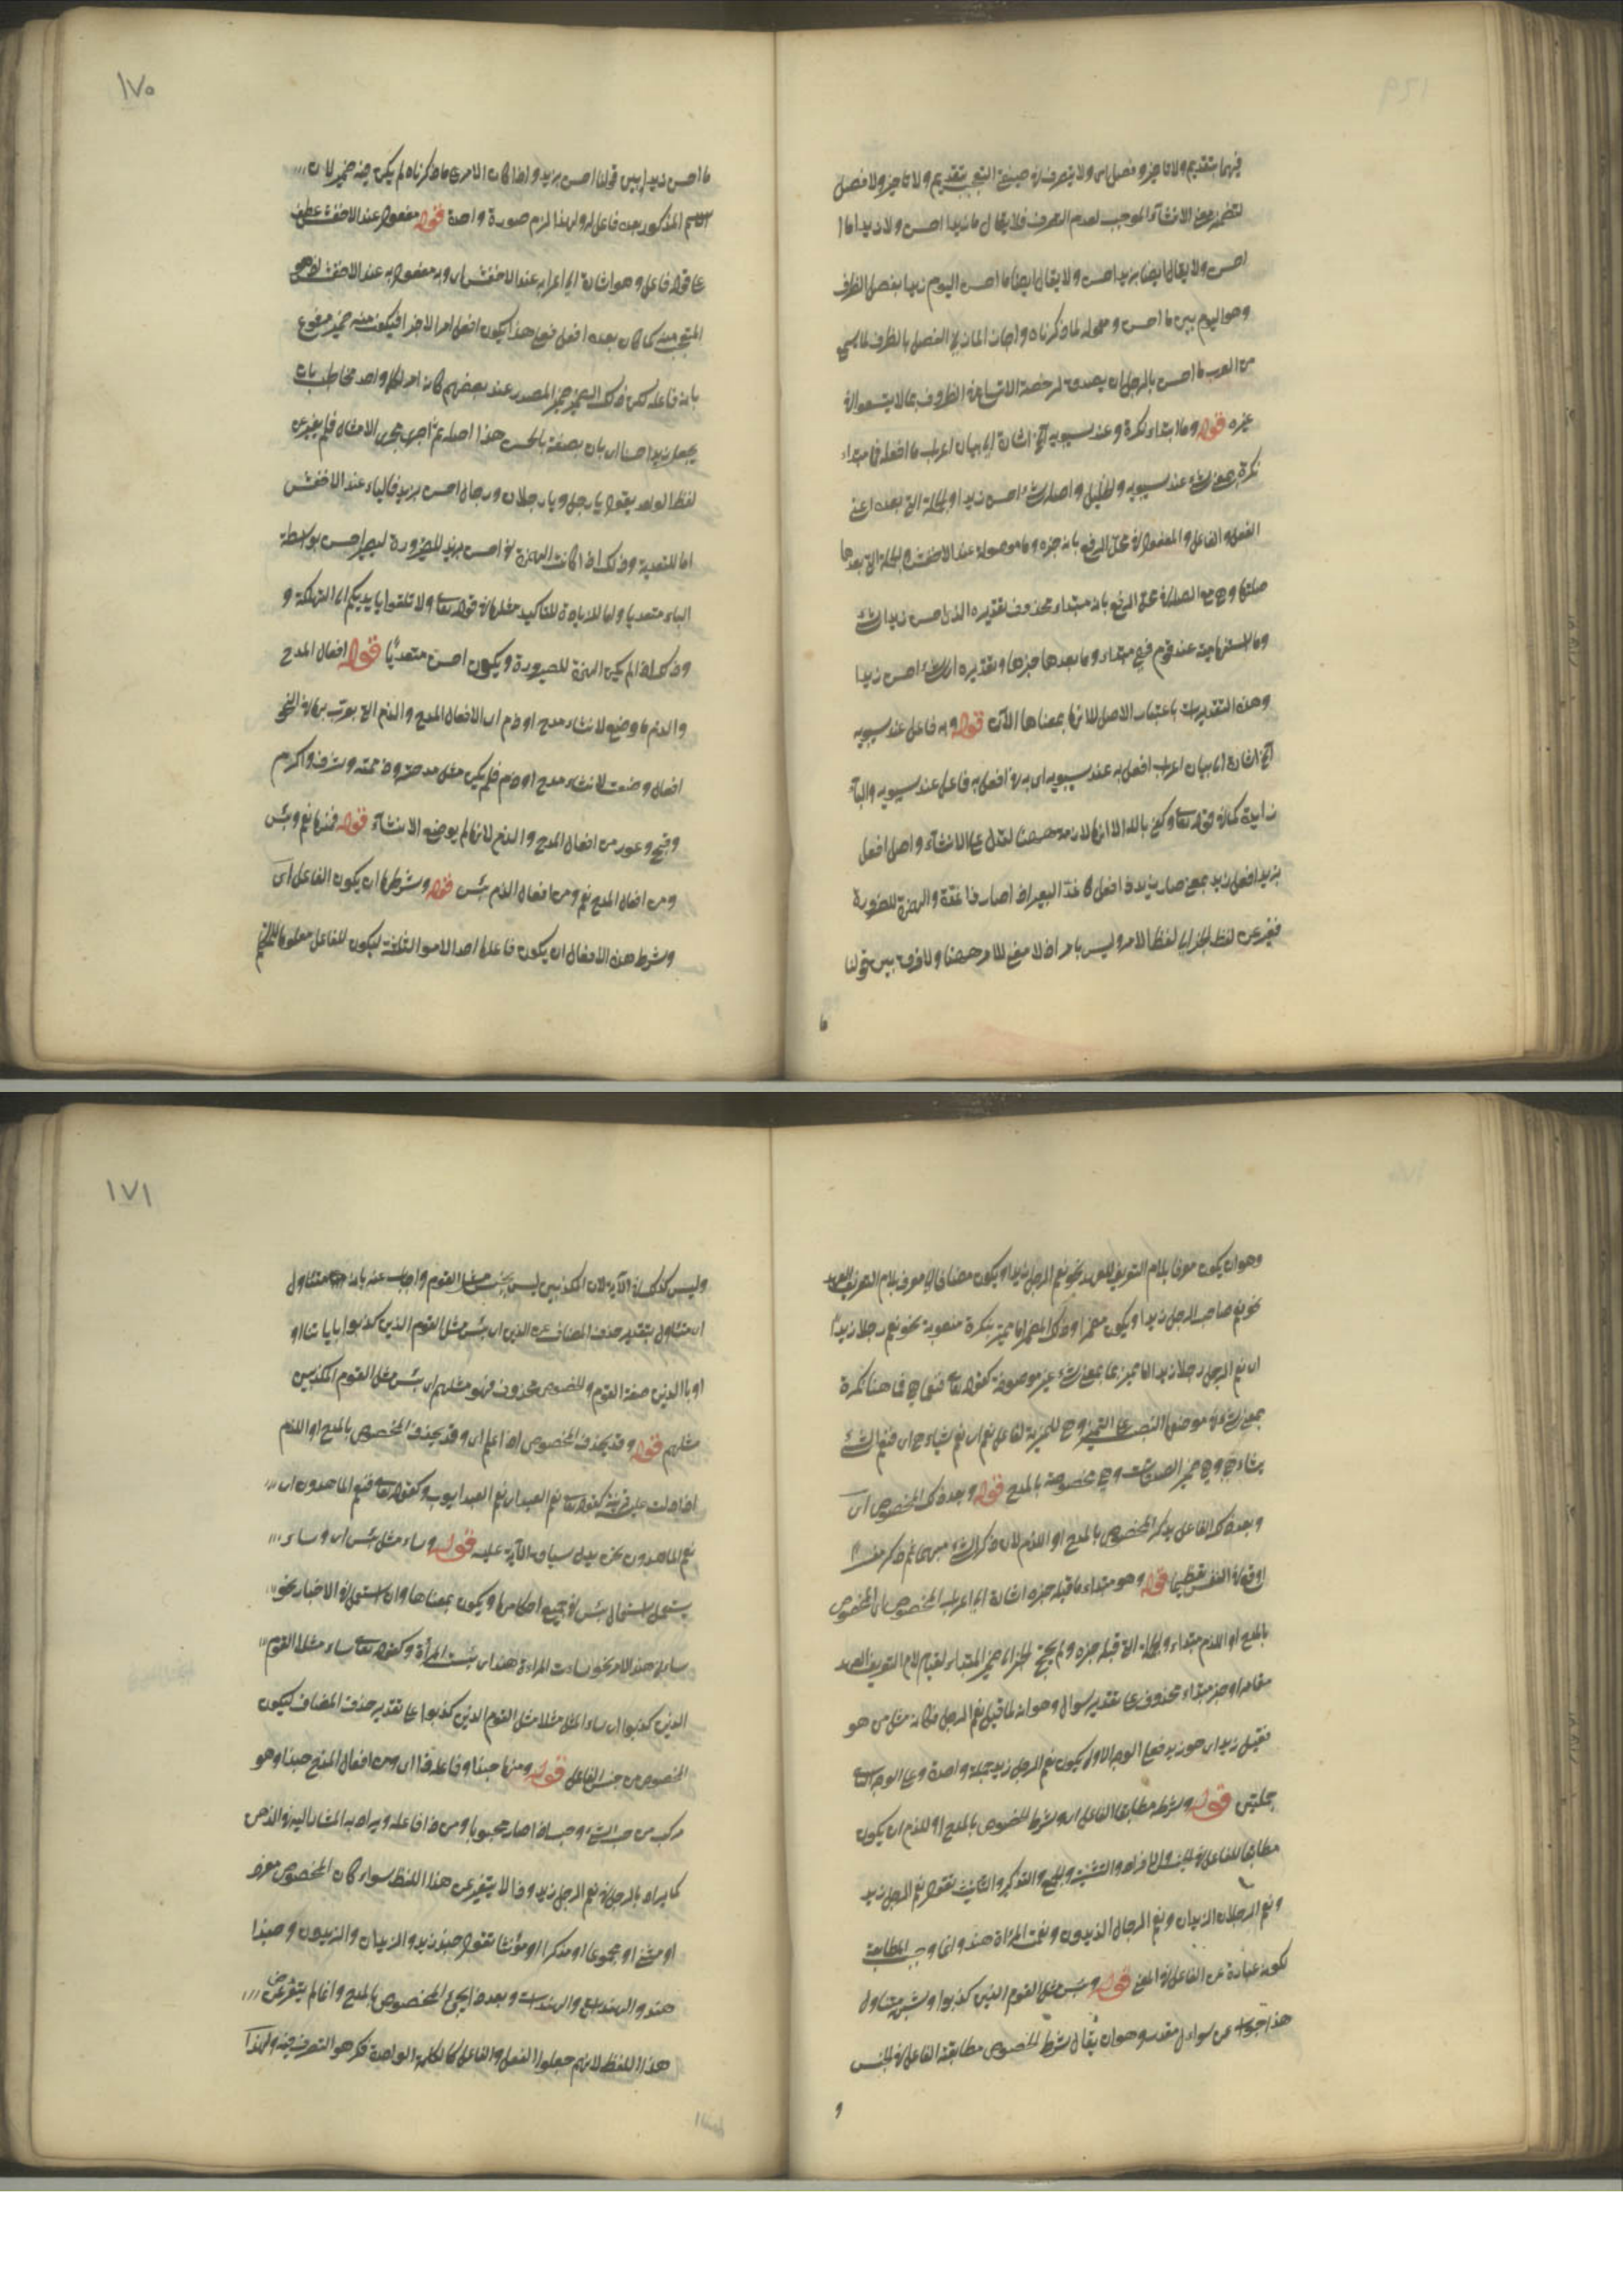 فيهما بتقديم ولا تاخير و فصل اى ولا يتصرف فى صيغتى التعجب بتقديم ولا تاخير ولا فصل
لتضمنهما معنى الانشاء الموجب لعدم التصرف فلا يقال ما زيدا احسن ولا زيدا ما
احسن ولا يقال ايضا بزيد احسن ولا يقال ايضا ما احسن اليوم زيدا بفصل الظرف
وهو اليوم بين ما احسن و معموله لما ذكرناه واجاز المازنى الفصل بالظرف لما سمع
من العرب ما احسن بالرجل ان يصدق لرخصة الاتساع فى الظروف بما لا يتسع فى
غيره قوله وما ابتداء نكرة وعند سيبويه الخ اشارة الى بيان اعراب ما افعله فما مبتداء
نكرة بمعنى شئ عند سيبويه والخليل واصله شئ احسن زيدا والجملة التى بعده اعنى
الفعل والفاعل والمفعول فى محل الرفع بانه خبره وما موصولة عند الاخفش والجملة التى بعدها
صلتها وهى مع الصلة فى محل الرفع بانه مبتداء محذوف تقديره الذى احسن زيدا شئ
وما استفهامية عند قوم فهى مبتداء وما بعدها خبرها وتقديره اى شئ احسن زيدا
وهذه التقديرات باعتبار الاصل لا انها بمعناها الآن قوله وبه فاعل عند سيبويه
الخ اشارة الى بيان اعراب افعل به عند سيبويه اى به فى افعل به فاعل عند سيبويه والباء
زايدة كما فى قوله تعالى وكفى بالله الا انها لازمة ههنا لتدل على الانشاء واصل افعل
بزيد افعل زيد بمعنى صار زيد ذا افعل كاغد البعير اذا صار ذا غدة والهمزة للصيرورة
فغير عن لفظ الخبر الى لفظ الامر وليس بامر اذ لا معنى للامر ههنا ولا فرق بين قولنا
ما
١٧٠
ما احسن زيدا وبين قولنا احسن بزيد واذا كان الامر على ما ذكرناه لم يكن فيه ضمير لان
الاسم المذكور بعده فاعل له ولهذا لزم صورة واحدة قوله مفعول عند الاخفش عطف
على قوله فاعل وهو اشارة الى اعرابه عند الاخفش اى وبه مفعول به عند الاخفش وهو
المتعجب منه كما كان بعد ما افعل فعلى هذا يكون افعل امرا لا خبرا فيكون فيه ضمير مرفوع
بانه فاعله لكن ذلك الضمير ضمير المصدر عند بعضهم كانه امر لكل واحد مخاطب بان
يجعل زيدا حسنا اى بان يصفه بالحسن هذا اصله ثم اجرى مجرى الامثال فلم يغير عن
لفظ الواحد يقول يا رجل ويا رجلان ورجال احسن بزيد فالباء عند الاخفش
اما للتعدية وذلك اذا كانت الهمزة فى احسن بزيد للصيرورة ليصير احسن بواسطة
الباء متعديا واما للزيادة للتاكيد مثلها فى قوله تعالى ولا تلقوا بايديكم الى التهلكة و
وذلك اذا لم يكن الهمزة للصيرورة ويكون احسن متعديًا قوله افعال المدح
والذم ما وضع لانشاء مدح او ذم اى الافعال المدح والذم التى بوب بها فى النحو
افعال وضعت لانشاء مدح او ذم فلم يكن مثل مدحته وذممته وشرف واكرم
وقبح وعور من افعال المدح والذم لانها لم يوضع لانشاء قوله فمنها نعم وبئس
ومن افعال المدح نعم ومن افعال الذم بئس قوله وشرطها ان يكون الفاعل اى
وشرط هذه الافعال ان يكون فاعلها احد الامور الثلثة ليكون للفاعل
وهو ان يكون معرفا بلام التعريف للعهد نحو نعم الرجل زيد او يكون مضافا الى المعرف بلام التعريف للعهد
نحو نعم صاحب الرجل زيد او يكون مضمرا وذلك المضمر اما مميز بنكرة منصوبة نحو نعم رجلا زيد
اى نعم الرجل رجلا زيد او مميز بما بمعنى شئ غير موصوفة كقوله تعالى فنعما هى فما هنا نكرة
بمعنى شئ فى موضع النصب على التمييز وهى المميزة لفاعل نعم اى نعم شيئا هى اى فنعم الشئ
شيئا هى وهى ضمير الصدقات وهى مخصوصة بالمدح قوله وبعد ذلك المخصوص اى
وبعد ذلك الفاعل يذكر المخصوص بالمدح او الذم لان ذكر الشئ مبهما ثم ذكره مفسرا
اوقع فى النفس تعظيما قوله وهو مبتداء ما قبله خبره اشارة الى اعراب المخصوص اى المخصوص
بالمدح او الذم مبتداء والجملة التى قبله خبره ولم يحتج الخبر الى ضمير المبتداء لقيام لام التعريف العهد
مقامه او خبر مبتداء محذوف على تقدير سوال وهو انه لما قيل نعم الرجل فكانه سئل من هو
فقيل زيد اى هو زيد فعلى الوجه الاول يكون نعم الرجل زيد جملة واحدة وعلى الوجه الثانى
جملتين قوله وشرطه مطابقة الفاعل اى وشرط المخصوص بالمدح او الذم ان يكون
مطابقا للفاعل فى الجنس والافراد والتثنية والجمع والتذكير والتانيث تقول نعم الرجل زيد
ونعم الرجلان الزيدان ونعم الرجال الزيدون ونعمت المرأة هند وانما وجب المطابقة
لكونه عبارة عن الفاعل فى المعنى قوله وبئس مثل القوم الذين كذبوا وشبهه متاول
هذا جواب عن سوال مقدر وهو ان يقال شرط المخصوص مطابقته الفاعل فى الجنس
و
١٧١
وليس كذلك فى الآية لان المكذبين ليس بجنس مثل القوم واجاب عنه بانه متاول
اى متاول بتقدير حذف المضاف عن الذين اى بئس مثل القوم الذين كذبوا باياتنا او
او بان الذين صفة القوم والمخصوص محذوف فهو مثلهم اى بئس مثل القوم المكذبين
مثلهم قوله وقد يحذف المخصوص اذا علم اى وقد يحذف المخصوص بالمدح او الذم
اذا دلت عليه قرينة كقوله تعالى نعم العبد اى نعم العبد ايوب وكقوله تعالى فنعم الماهدون اى
نعم الماهدون نحن بدليل سياق الآية عليه قوله وساء مثل بئس اى وساء
يستعمل استعمال بئس فى جميع احكامها ويكون بمعناها وان استعمل فى الاخبار نحو
ساءنى هذا الامر نحو ساءت المراءة هند اى بئست المرأة وكقوله تعالى ساء مثلا القوم
الذين كذبوا اى ساء المثل مثلا مثل القوم الذين كذبوا على تقدير حذف المضاف ليكون
المخصوص من جنس الفاعل قوله ومنها حبذا وفاعله ذا اى ومن افعال المدح حبذا وهو
مركب من حب الشئ وحب اذا صار محبوبا ومن ذا فاعله ويراد به المشار اليه فى الذهن
كما يراد بالرجل فى نعم الرجل زيد وذا لا يتغير عن هذا اللفظ سواء كان المخصوص مفردا
او مثنى او مجموعا او مذكرا او مؤنثا تقول حبذا زيد والزيدان والزيدون وحبذا
هند والهندان والهندات وبعد ذا يجئ المخصوص بالمدح وانما لم يتغير عن
هذا اللفظ لانهم جعلوا الفعل والفاعل كالكلمة الواحدة فكرهوا التصرف فيه ولهذا